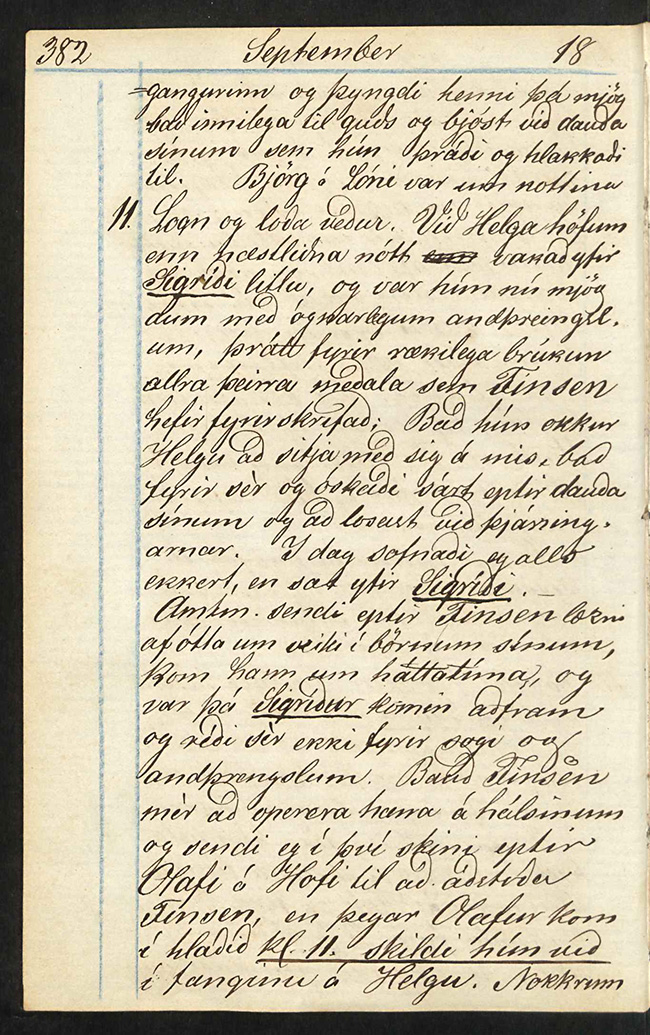 382 September 18
=gangurinn og þyngdi henni þá mjög
bað innilega til guðs og bjóst við dauða
sínum sem hún þráði og hlakkaði
til. Björg á Lóni var um nottina
11. Logn og loða veður. Við Helga höfum
enn næstliðna nótt vakað yfir
Sigríði litlu, og var hún nú mjög
aum með ógnarlegum andþreingsl-
um, þrátt fyrir rækilega brúkun
allra þeirra meðala sem Finsen
hefir fyrirskrifað; Bað hún okkur
Helgu að sitja með sig á mis, bað
fyrir sèr og óskaði sárt eptir dauða
sínum og að losast við þjáning-
arnar. I dag sofnaði eg alls
ekkert, en sat yfir Sigríði. –
Amtm. sendi eptir Finsen lækni
af ótta um veiki í börnum sínum,
kom hann um háttatíma, og
var þá Sigríður komin aðfram
og réði sèr ekki fyrir sogi og
andþrengslum. Bauð Finsen
mèr að operera hana á hálsinum
og sendi eg í því skini eptir
Olafi á Hofi til að aðstoða
Finsen, en þegar Olafur kom
í hlaðið kl. 11. skildi hún við
í fanginu á Helgu. Nokkrum